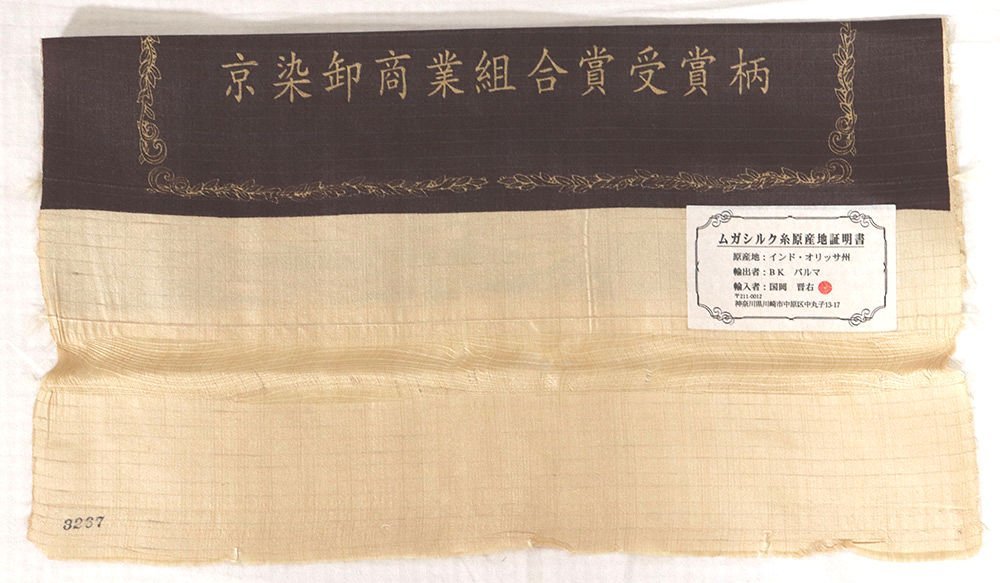 京染卸商業組合賞受賞柄
ムガシルク糸原産地証明書
原産地：インド・オリッサ州
輸出者：BK　バルマ
輸入者：国岡　晋右
〒211-0012
神奈川県川崎市中原区中丸子13-17
3267